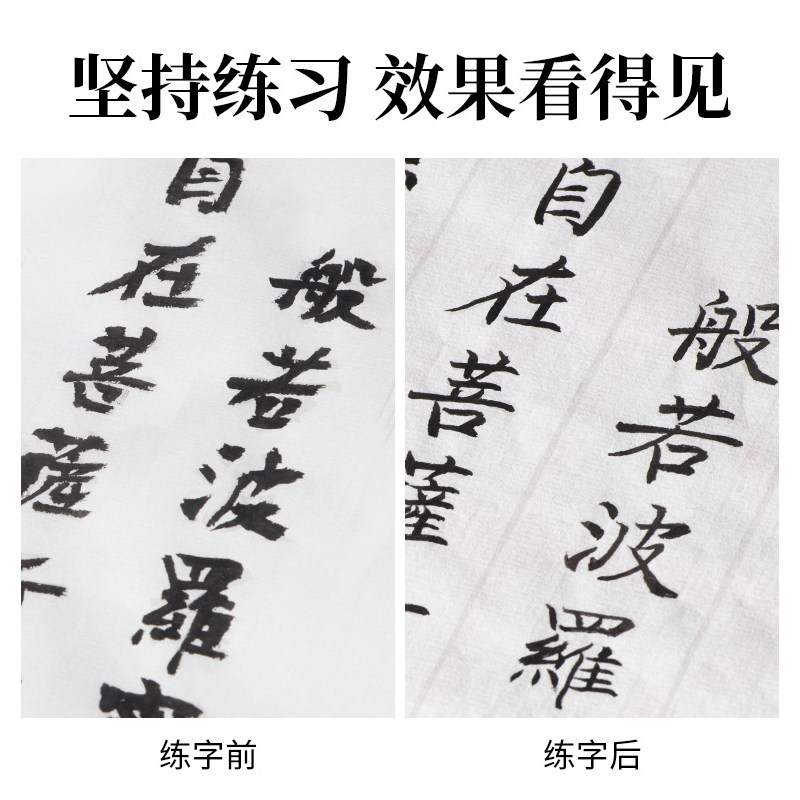 坚持练习 效果看得见
般若波羅
自在菩薩
般若波羅
自在菩薩
练字前
练字后